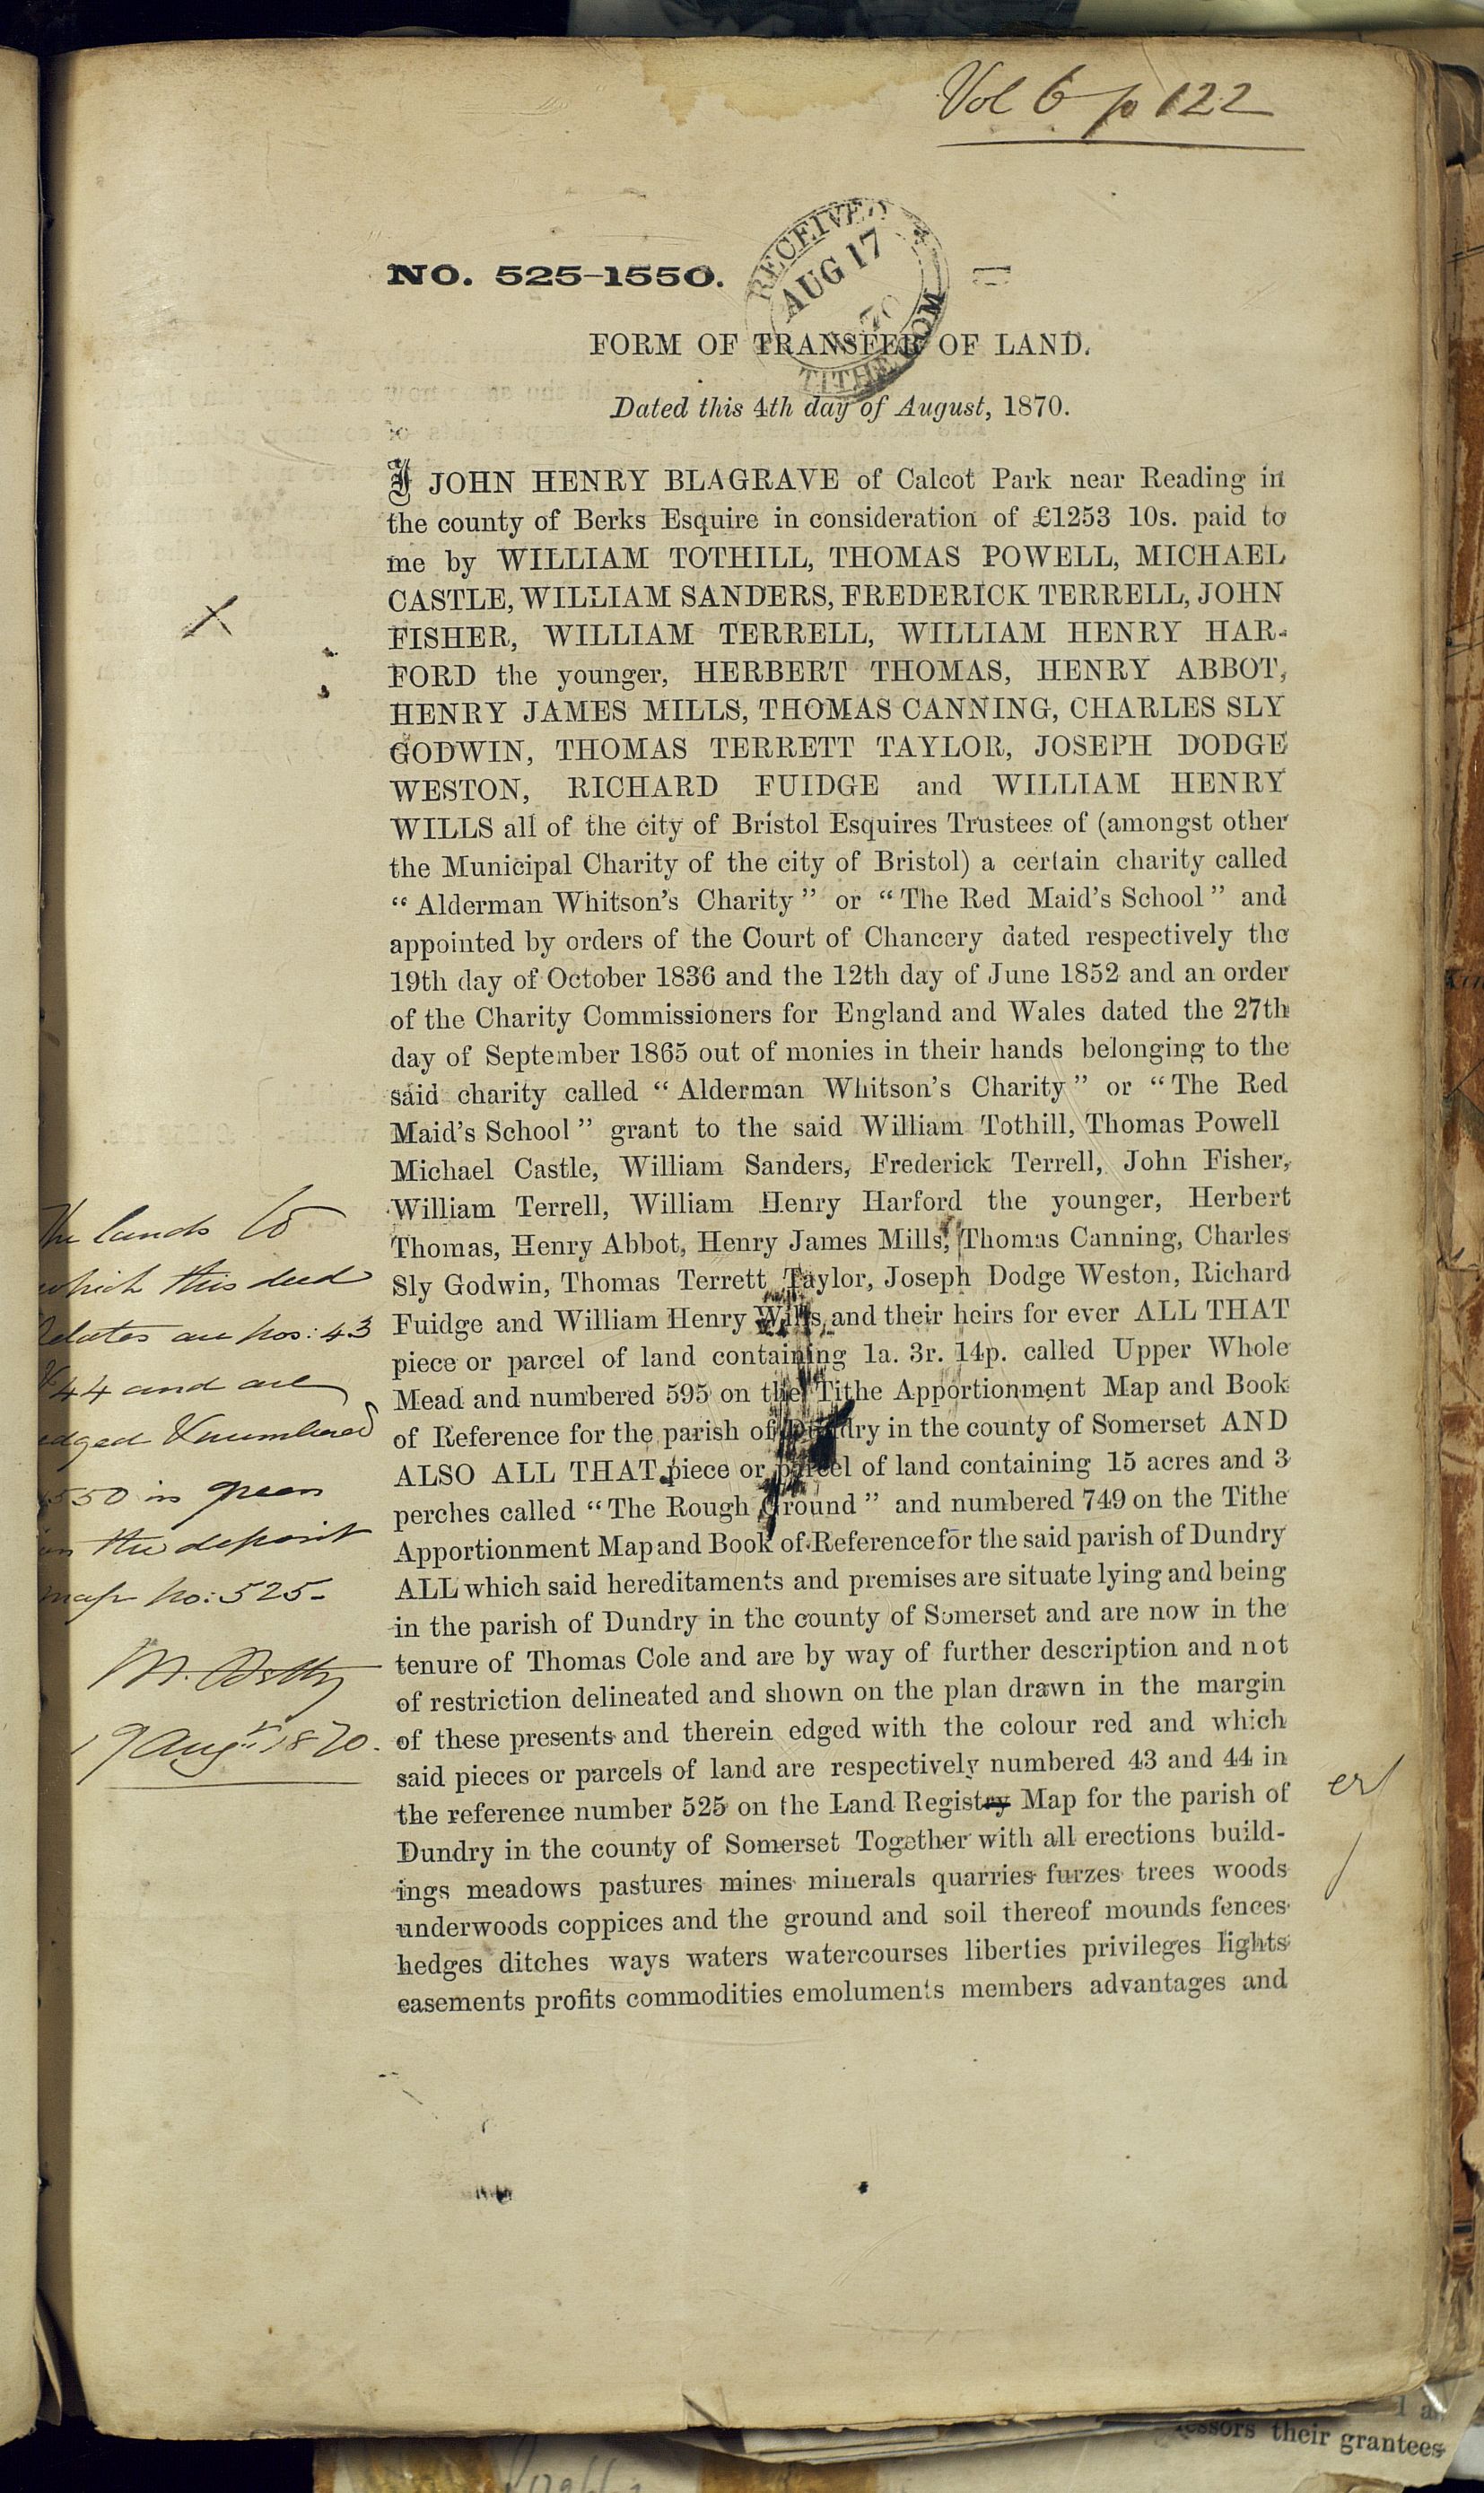 Vol 6 p 122
NO. 525-1550.
RECEIVED
AUG 17
70
TITHE COM
FORM OF TRANSFER OF LAND.
Dated this 4th day of August, 1870.
I JOHN HENRY BLAGRAVE of Calcot Park near Reading in
the county of Berks Esquire in consideration of £1253 10s. paid to
me by WILLIAM TOTHILL, THOMAS POWELL, MICHAEL
CASTLE, WILLIAM SANDERS, FREDERICK TERRELL, JOHN
FISHER, WILLIAM TERRELL, WILLIAM HENRY HAR-
FORD the younger, HERBERT THOMAS, HENRY ABBOT,
HENRY JAMES MILLS, THOMAS CANNING, CHARLES SLY
GODWIN, THOMAS TERRETT TAYLOR, JOSEPH DODGE
WESTON, RICHARD FUIDGE and WILLIAM HENRY
WILLS all of the city of Bristol Esquires Trustees of (amongst other
the Municipal Charity of the city of Bristol) a certain charity called
“Alderman Whitson's Charity” or “The Red Maid's School” and
appointed by orders of the Court of Chancery dated respectively the
19th day of October 1836 and the 12th day of June 1852 and an order
of the Charity Commissioners for England and Wales dated the 27th
day of September 1865 out of monies in their hands belonging to the
said charity called “Alderman Whitson's Charity” or “The Red
Maid's School” grant to the said William Tothill, Thomas Powell
Michael Castle, William Sanders, Frederick Terrell, John Fisher,
William Terrell, William Henry Harford the younger, Herbert
Thomas, Henry Abbot, Henry James Mills, Thomas Canning, Charles
Sly Godwin, Thomas Terrett Taylor, Joseph Dodge Weston, Richard
Fuidge and William Henry Wills and their heirs for ever ALL THAT
piece or parcel of land containing 1a. 3r. 14p. called Upper Whole
Mead and numbered 595 on the Tithe Apportionment Map and Book
of Reference for the parish of Dundry in the county of Somerset AND
ALSO ALL THAT piece or parcel of land containing 15 acres and 3
perches called “The Rough Ground” and numbered 749 on the Tithe
Apportionment Map and Book of Reference for the said parish of Dundry
ALL which said hereditaments and premises are situate lying and being
in the parish of Dundry in the county of Somerset and are now in the
tenure of Thomas Cole and are by way of further description and not
of restriction delineated and shown on the plan drawn in the margin
of these presents and therein edged with the colour red and which
said pieces or parcels of land are respectively numbered 43 and 44 in
the reference number 525 on the Land Registry Map for the parish of
er/
Dundry in the county of Somerset Together with all erections build-
ings meadows pastures mines minerals quarries furzes trees woods
underwoods coppices and the ground and soil thereof mounds fences
hedges ditches ways waters watercourses liberties privileges lights
easements profits commodities emoluments members advantages and
The lands to
which this deed
relates are nos: 43
& 44 and are
edged & numbered
1550 in green
in the deposit
map no: 525-
19 Augt. 1870.
essors their grantees